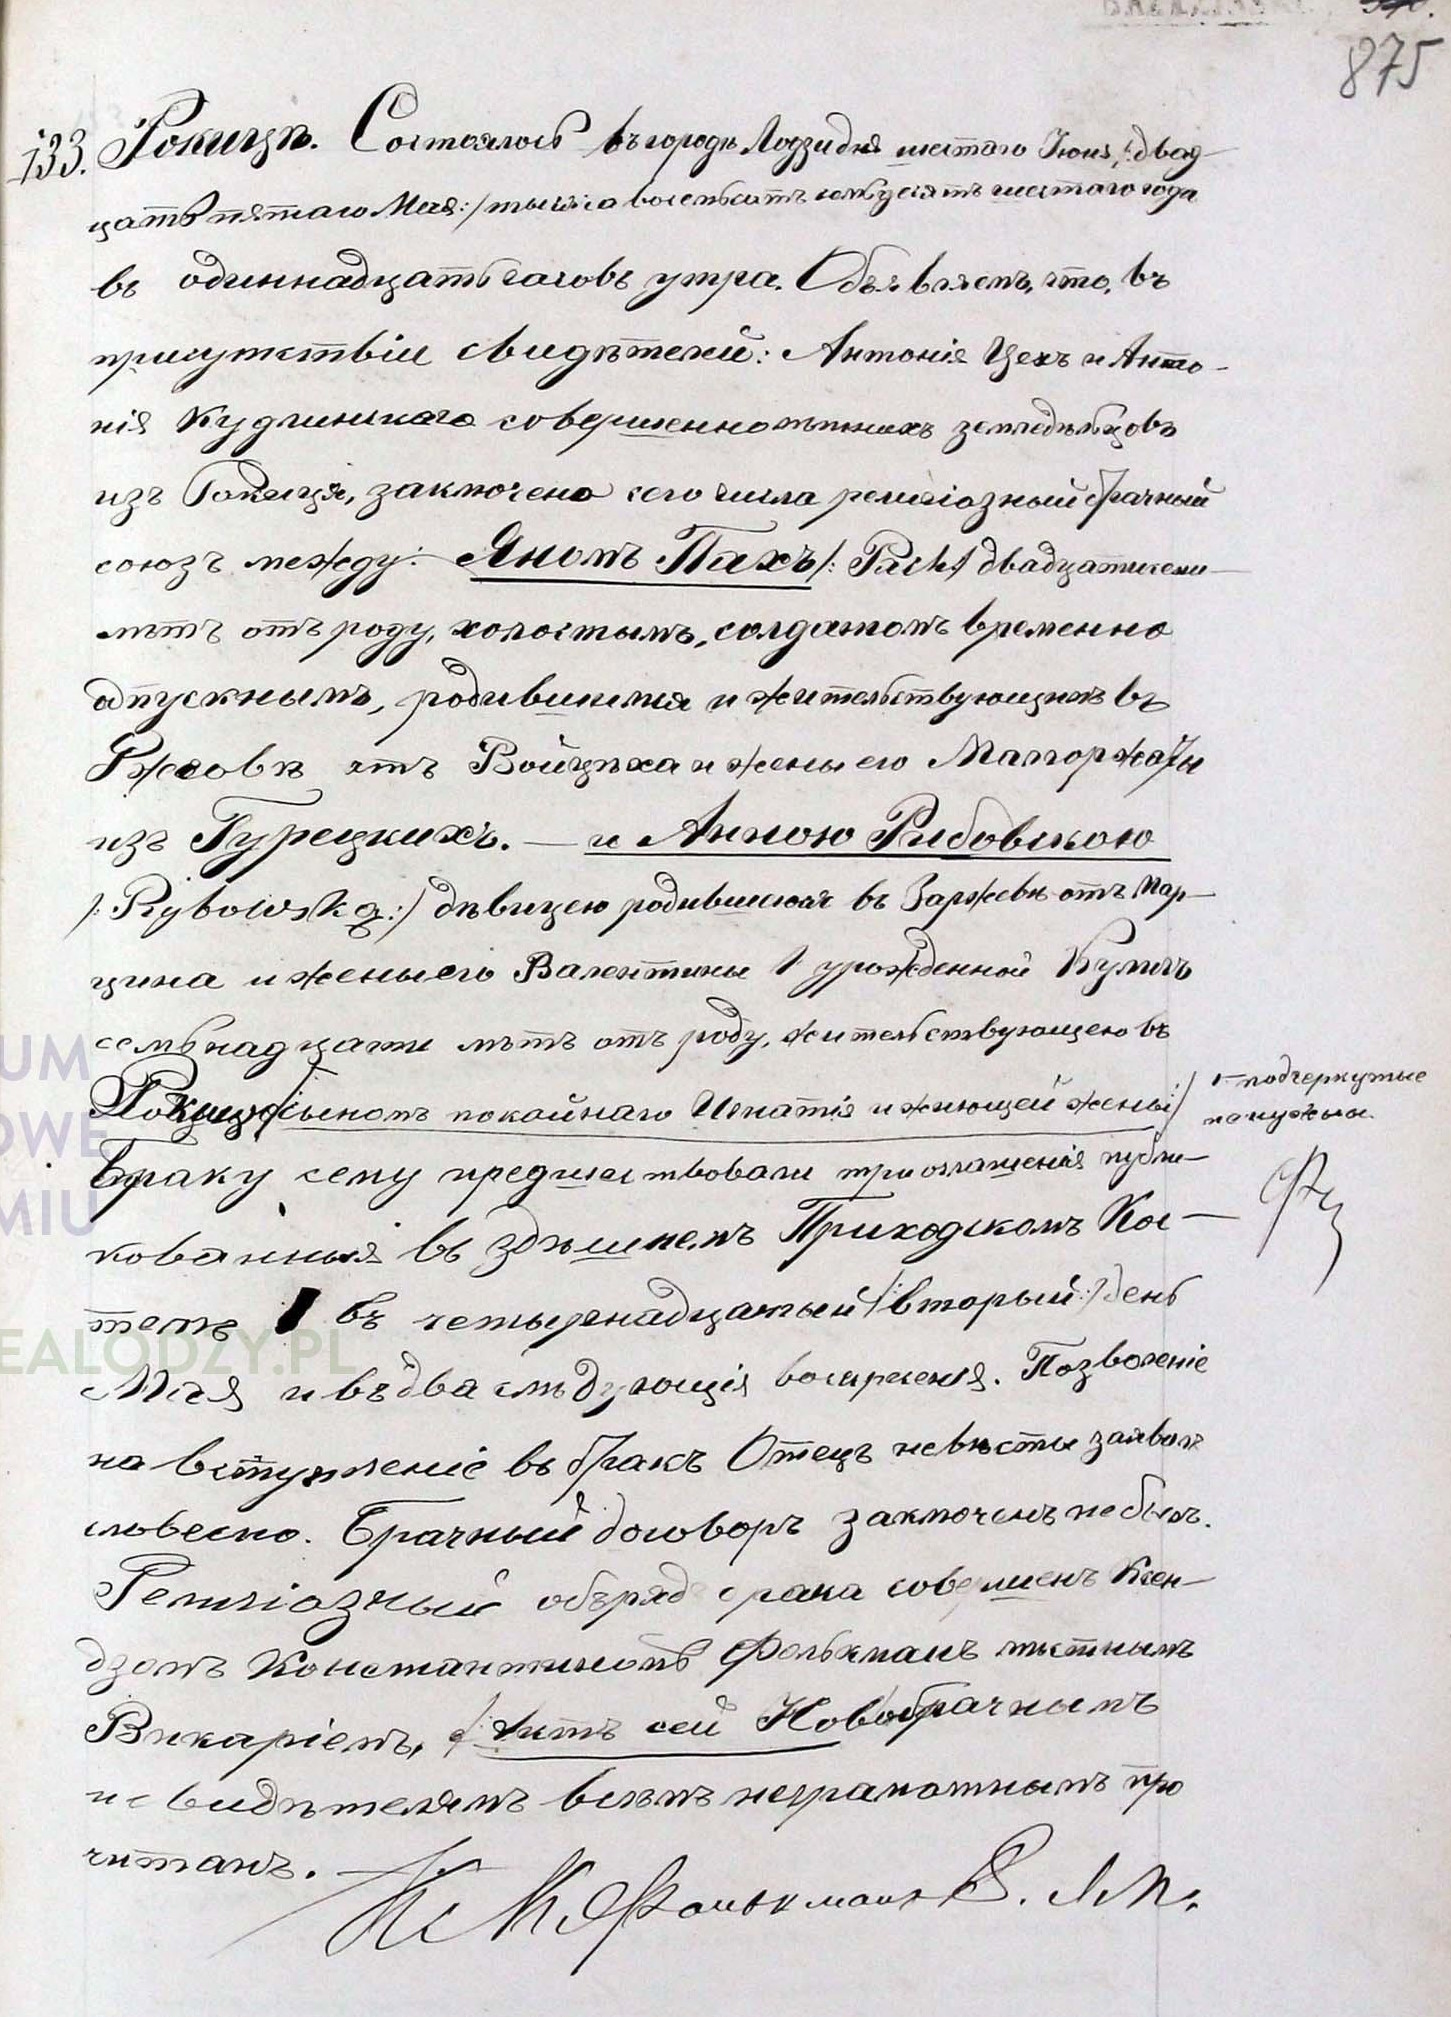 875
133. Рокицѣ. Состоялось въ городѣ Лодзи дня шестаго Іюня /:двад-
цать пятаго Мая:/ тысяча восемьсотъ семьдесятъ шестаго года
въ одиннадцать часовъ утра. Объявляемъ, что, въ
присутствіи свидѣтелей: Антонія Цехъ и Анто-
нія Кудлинскаго совершеннолѣтнихъ земледѣльцовъ
изъ Рокиція, заключено сего числа религіозный брачный
союзъ между: Яномъ Пахъ /: Pach :/ двадцатисеми
лѣтъ отъ роду, холостымъ, солдатомъ временно
отпускнымъ, родившимся и жительствующимъ въ
Ржговѣ отъ Войцѣха и жены его Малгоржаты
изъ Гурецкихъ. — и Анною Рыбовскою
/: Rybowską :/ дѣвицею родившеюся въ Заржевѣ отъ Мар-
цина и жены его Валентины урожденной Кулигъ
семьнадцати лѣтъ отъ роду, жительствующею въ
Рокицѣ /сыномъ покойнаго Игнатія и живющей жены/
подчеркутые
не нужны
Браку сему предшествовали три оглашенія публи-
кованныя въ здѣшнемъ Приходскомъ Кос-
телѣ въ четырнадцатый /:вторый:/ день
Мая и въ два слѣдующія воскресенія. Позволеніе
на вступленіе въ бракъ Отецъ невѣсты заявилъ
словесно. Брачный договоръ заключенъ не былъ.
Религіозный обрядъ брака совершенъ Ксен-
дзомъ Константиномъ Фолькманъ мѣстнымъ
Викаріемъ, Актъ сей Новобрачнымъ
и свидѣтелямъ всѣмъ неграмотнымъ про
читанъ.
Кс К Фолькманъ
UM
OWE
MIU
EALODZY.PL